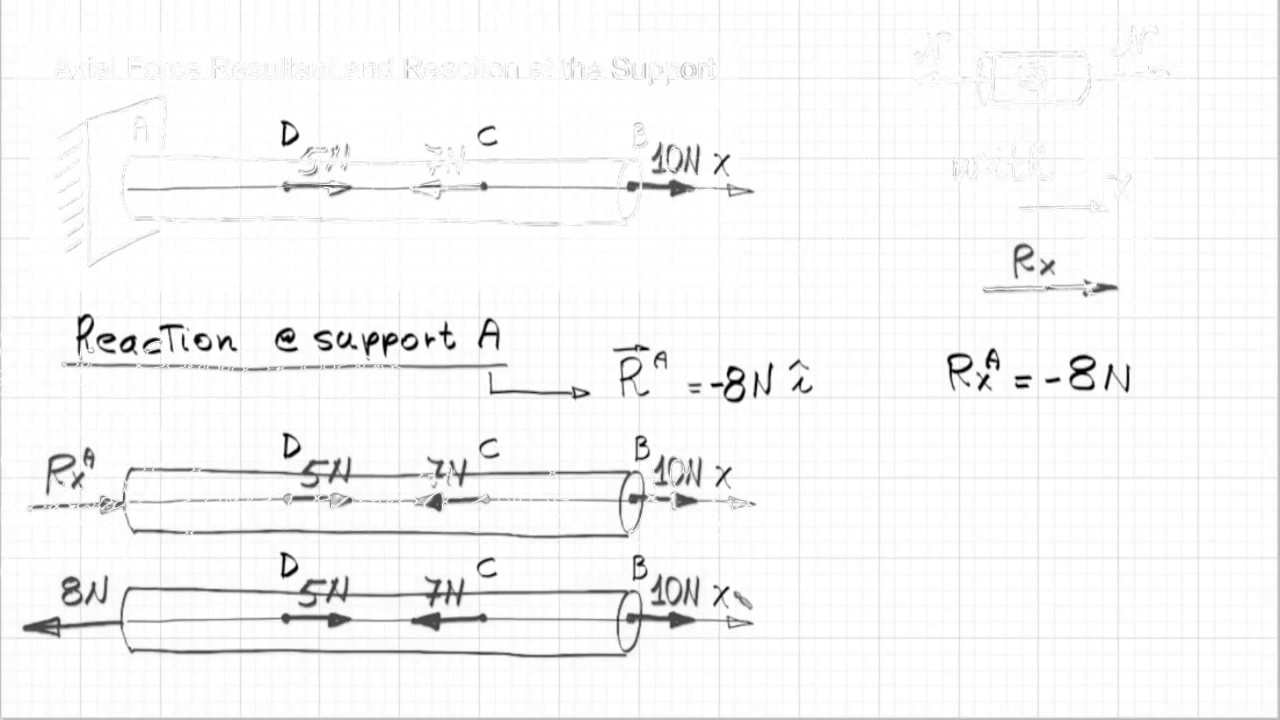 Axial Force Resultant and Reaction at the Support
N N
A D 5N 7N C B 10N x
write
x
Rx
Reaction @ support A
R^A = -8N î
Rx^A = -8N
Rx^A D 5N 7N C B 10N x
8N D 5N 7N C B 10N x